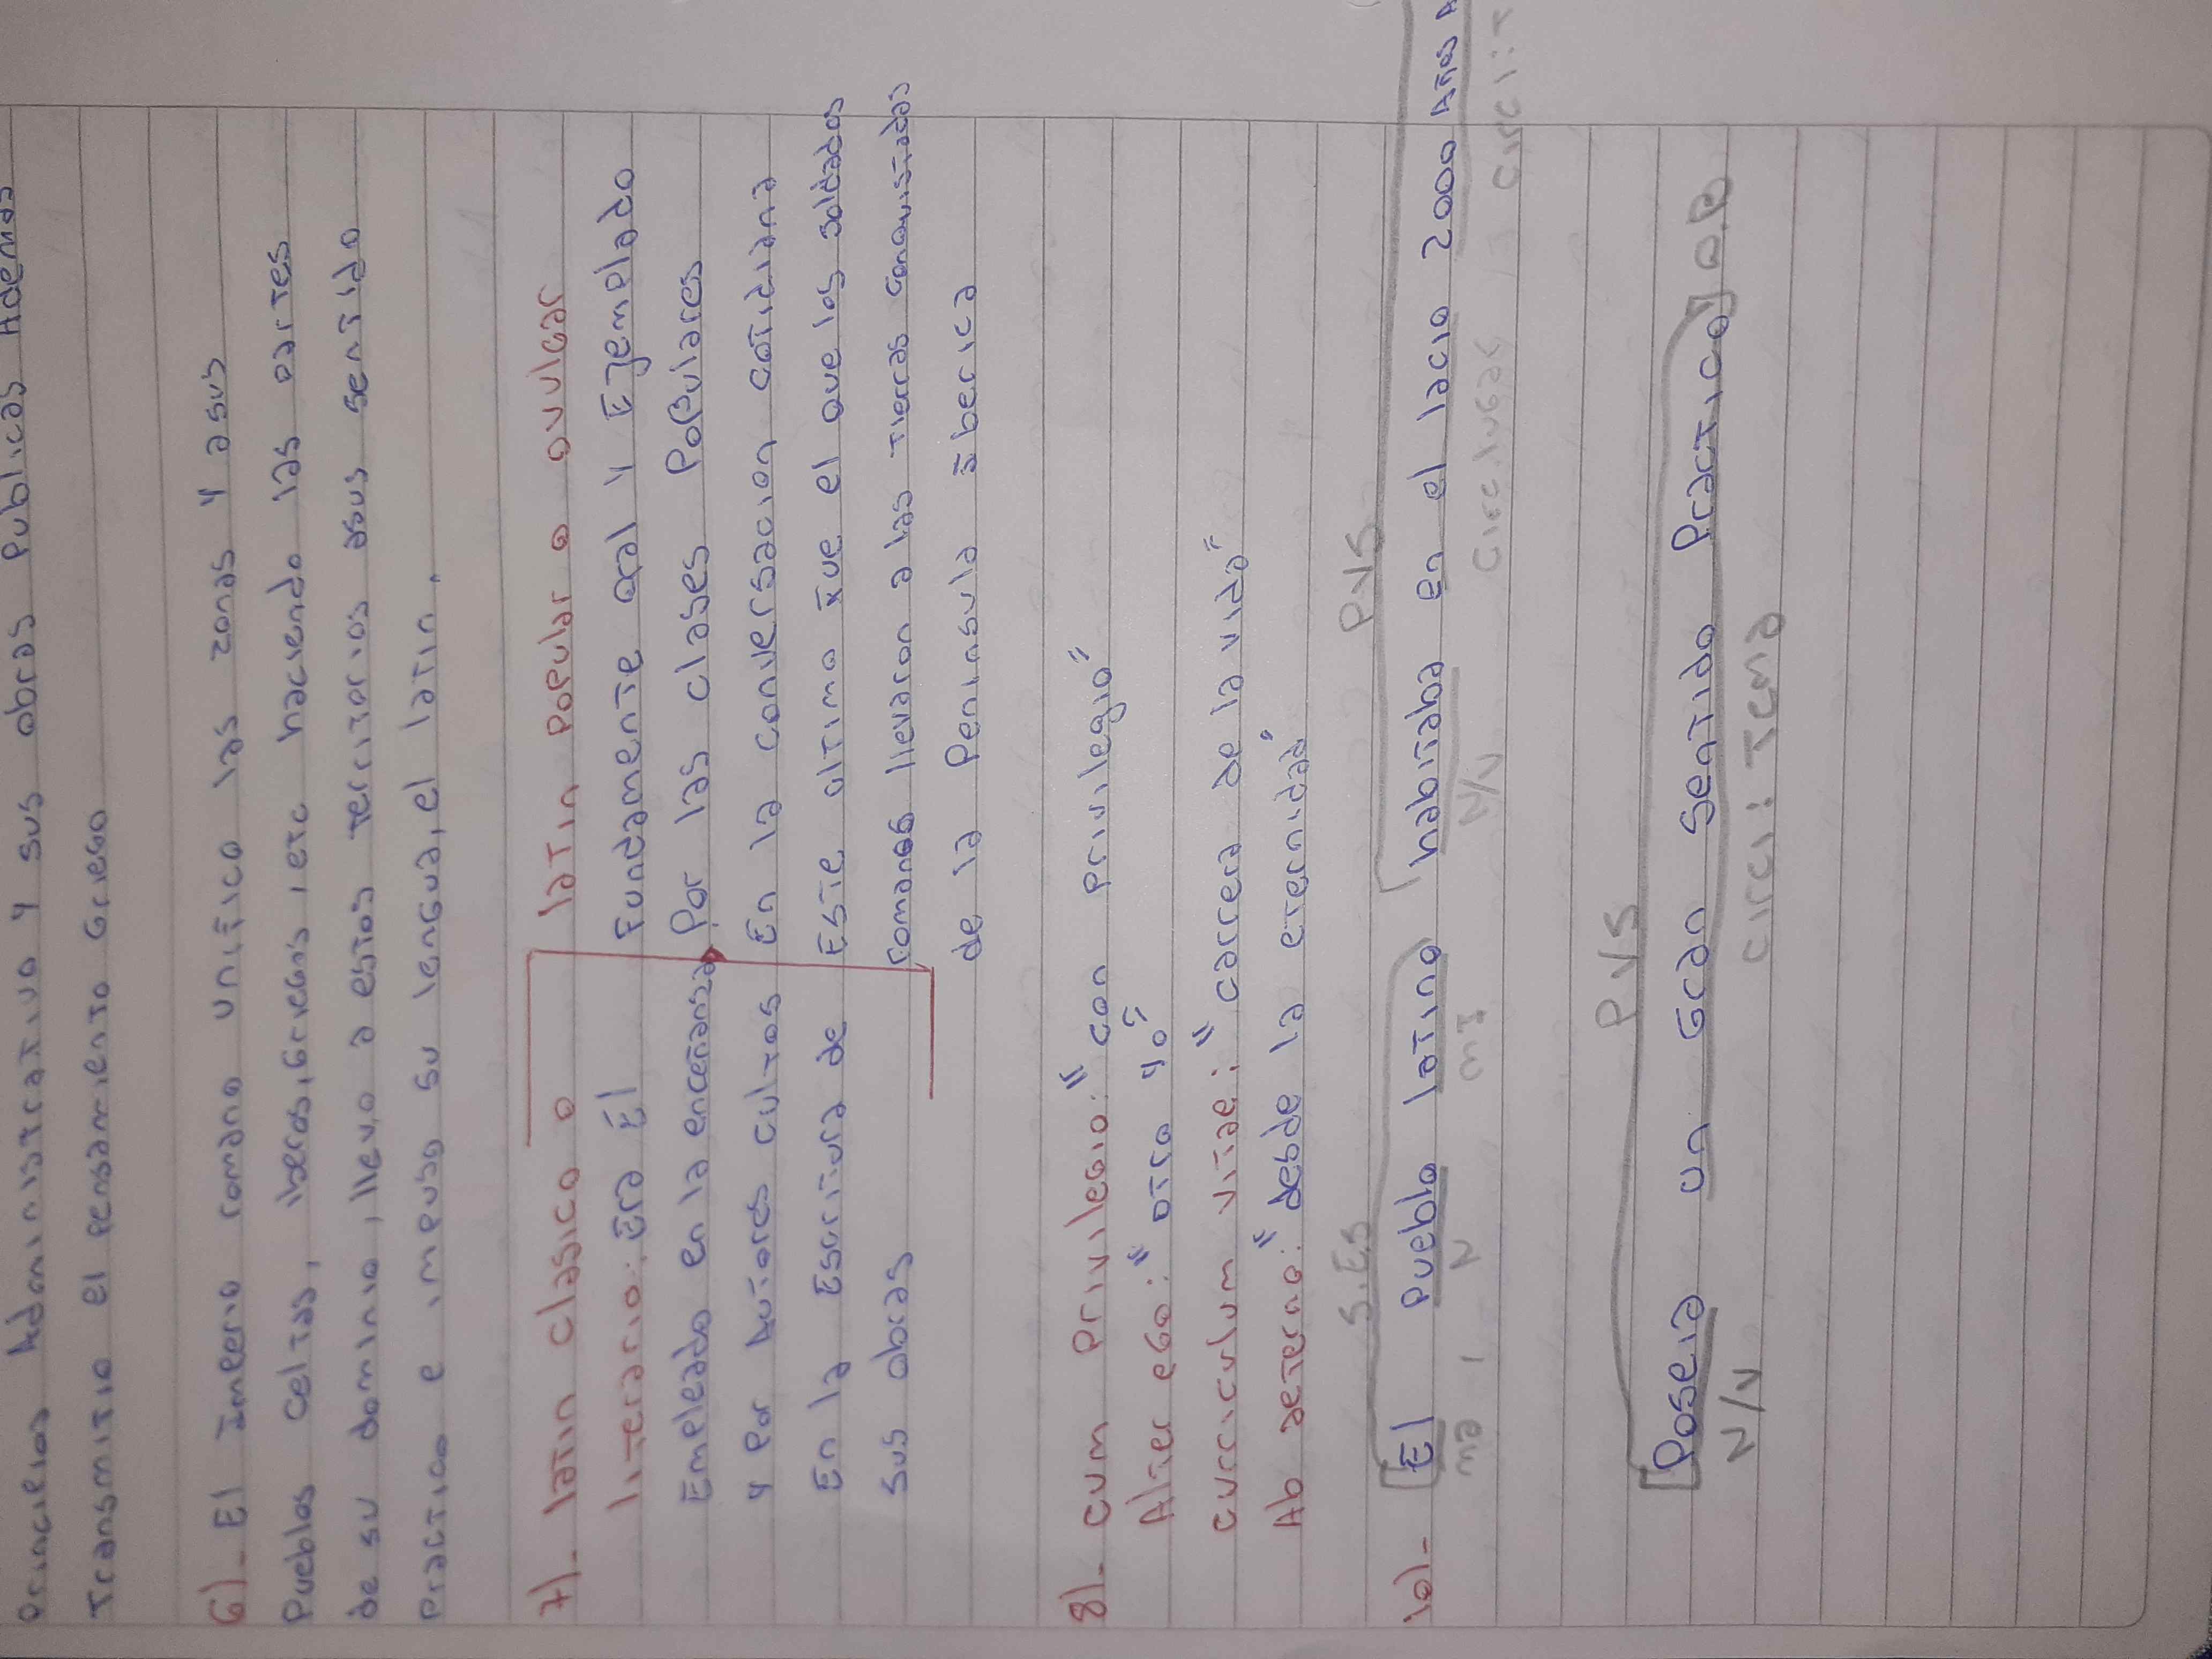 Principios Administrativo y sus obras publicas Ademas
Transmitio el pensamiento Griego
6)- El Imperio romano unifico las zonas y asus
Pueblos Celtas, Iberos, Griegos, etc haciendo las partes
de su dominio, llevo a estos territorios asus sentido
Practico e impuso su lengua, el latin.
7)- latin clasico o
literario: Era El
Empleado en la enceñanza
y por Autores cultos
En la Escritura de
sus obras
latin popular o vulgar
Fundamente oral y Ejemplado
Por las clases Populares
En la conversacion cotidiana
Este ultimo Fue el que los soldados
romanos llevaron a las tierras conquistadas
de la Peninsula iberica
8)- cum privilegio: "con privilegio"
Alter ego: "otro yo"
curriculum vitae: "carrera de la vida"
Ab aeterno: "desde la eternidad"
S.E.S P.V.S
10)- [El pueblo latino] [habitaba en el lacio 2000 Años A
md N mI N/V Circ. lugar Circ l: T
P.V.S
[Poseia un Gran Sentido Practico] O.B
N/V Circ: Tema